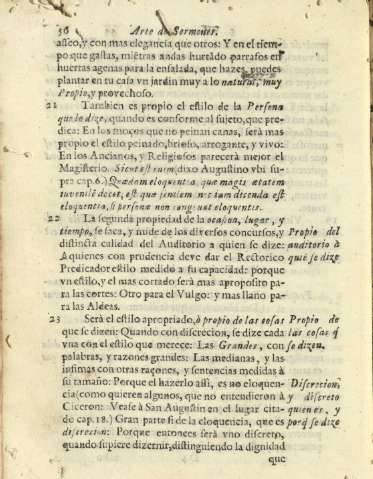 56 Arte de Sermones.
asseo, y con mas elegancia que otros: Y en el tiem-
po que gastas, miẽtras andas hurtãdo parrafos en
huertas agenas para la ensalada, que hazes, puedes
plantar en tu casa vn jardin muy a lo natural, muy
Propio, y provechoso.
21 Tambien es propio el estilo de la Persona
que lo dize, quando es conforme al sujeto, que pre-
dica: En los moços que no peinan canas, serà mas
propio el estilo peinado, brioso, arrogante, y vivo:
En los Ancianos, y Religiosos parecerà mejor el
Magisterio. Sicut est enim (dixo Augustino vbi su-
pra cap. 6.) Quædam eloquentia que magis ætatem
iuvenilẽ decet, est que senilem nec iam dicenda est
eloquentia, si personæ non congruat eloquentis.
22 La segunda propiedad de la ocasion, lugar, y
tiempo, se saca, y mide de los diversos concursos, y
distincta calidad del Auditorio a quien se dize:
A quienes con prudencia deve dar el Rectorico
Predicador estilo medido a su capacidad: porque
vn estilo, y el mas cortado serà mas aproposito pa-
ra las cortes: Otro para el Vulgo: y mas llano pa-
ra las Aldeas.
Propio del
auditorio à
quiẽ se dize
23 Serà el estilo apropriado, ò propio de las cosas
que se dizen: Quando con discrecion, se dize cada
vna con el estilo que merece: Las Grandes, con
palabras, y razones grandes: Las medianas, y las
infimas con otras razones, y sentencias medidas à
su tamaño: Porque el hazerlo assi, es no eloquen-
cia (como quieren algunos, que no entendieron à
Ciceron: Vease à San Augustin en el lugar cita-
do cap. 18.) Gran parte si de la eloquencia, que es
discrecion: Porque entonces serà vno discreto,
quando supiere dizernir, distinguiendo la dignidad
Propio de
las cosas q̃
se dizen.
Discrecion
y discreto
quien es, y
porq̃ se dize
que